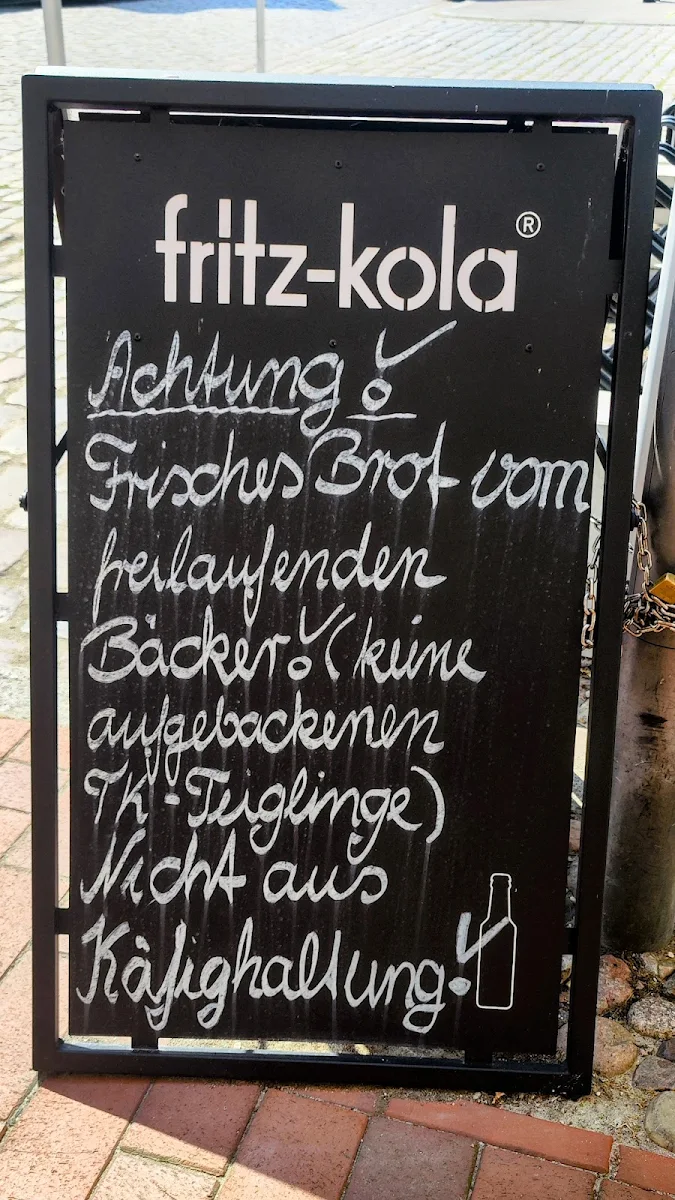 fritz-kola®
Achtung!
Frisches Brot vom
freilaufenden
Bäcker! (keine
aufgebackenen
TK-Teiglinge)
Nicht aus
Käfighaltung!